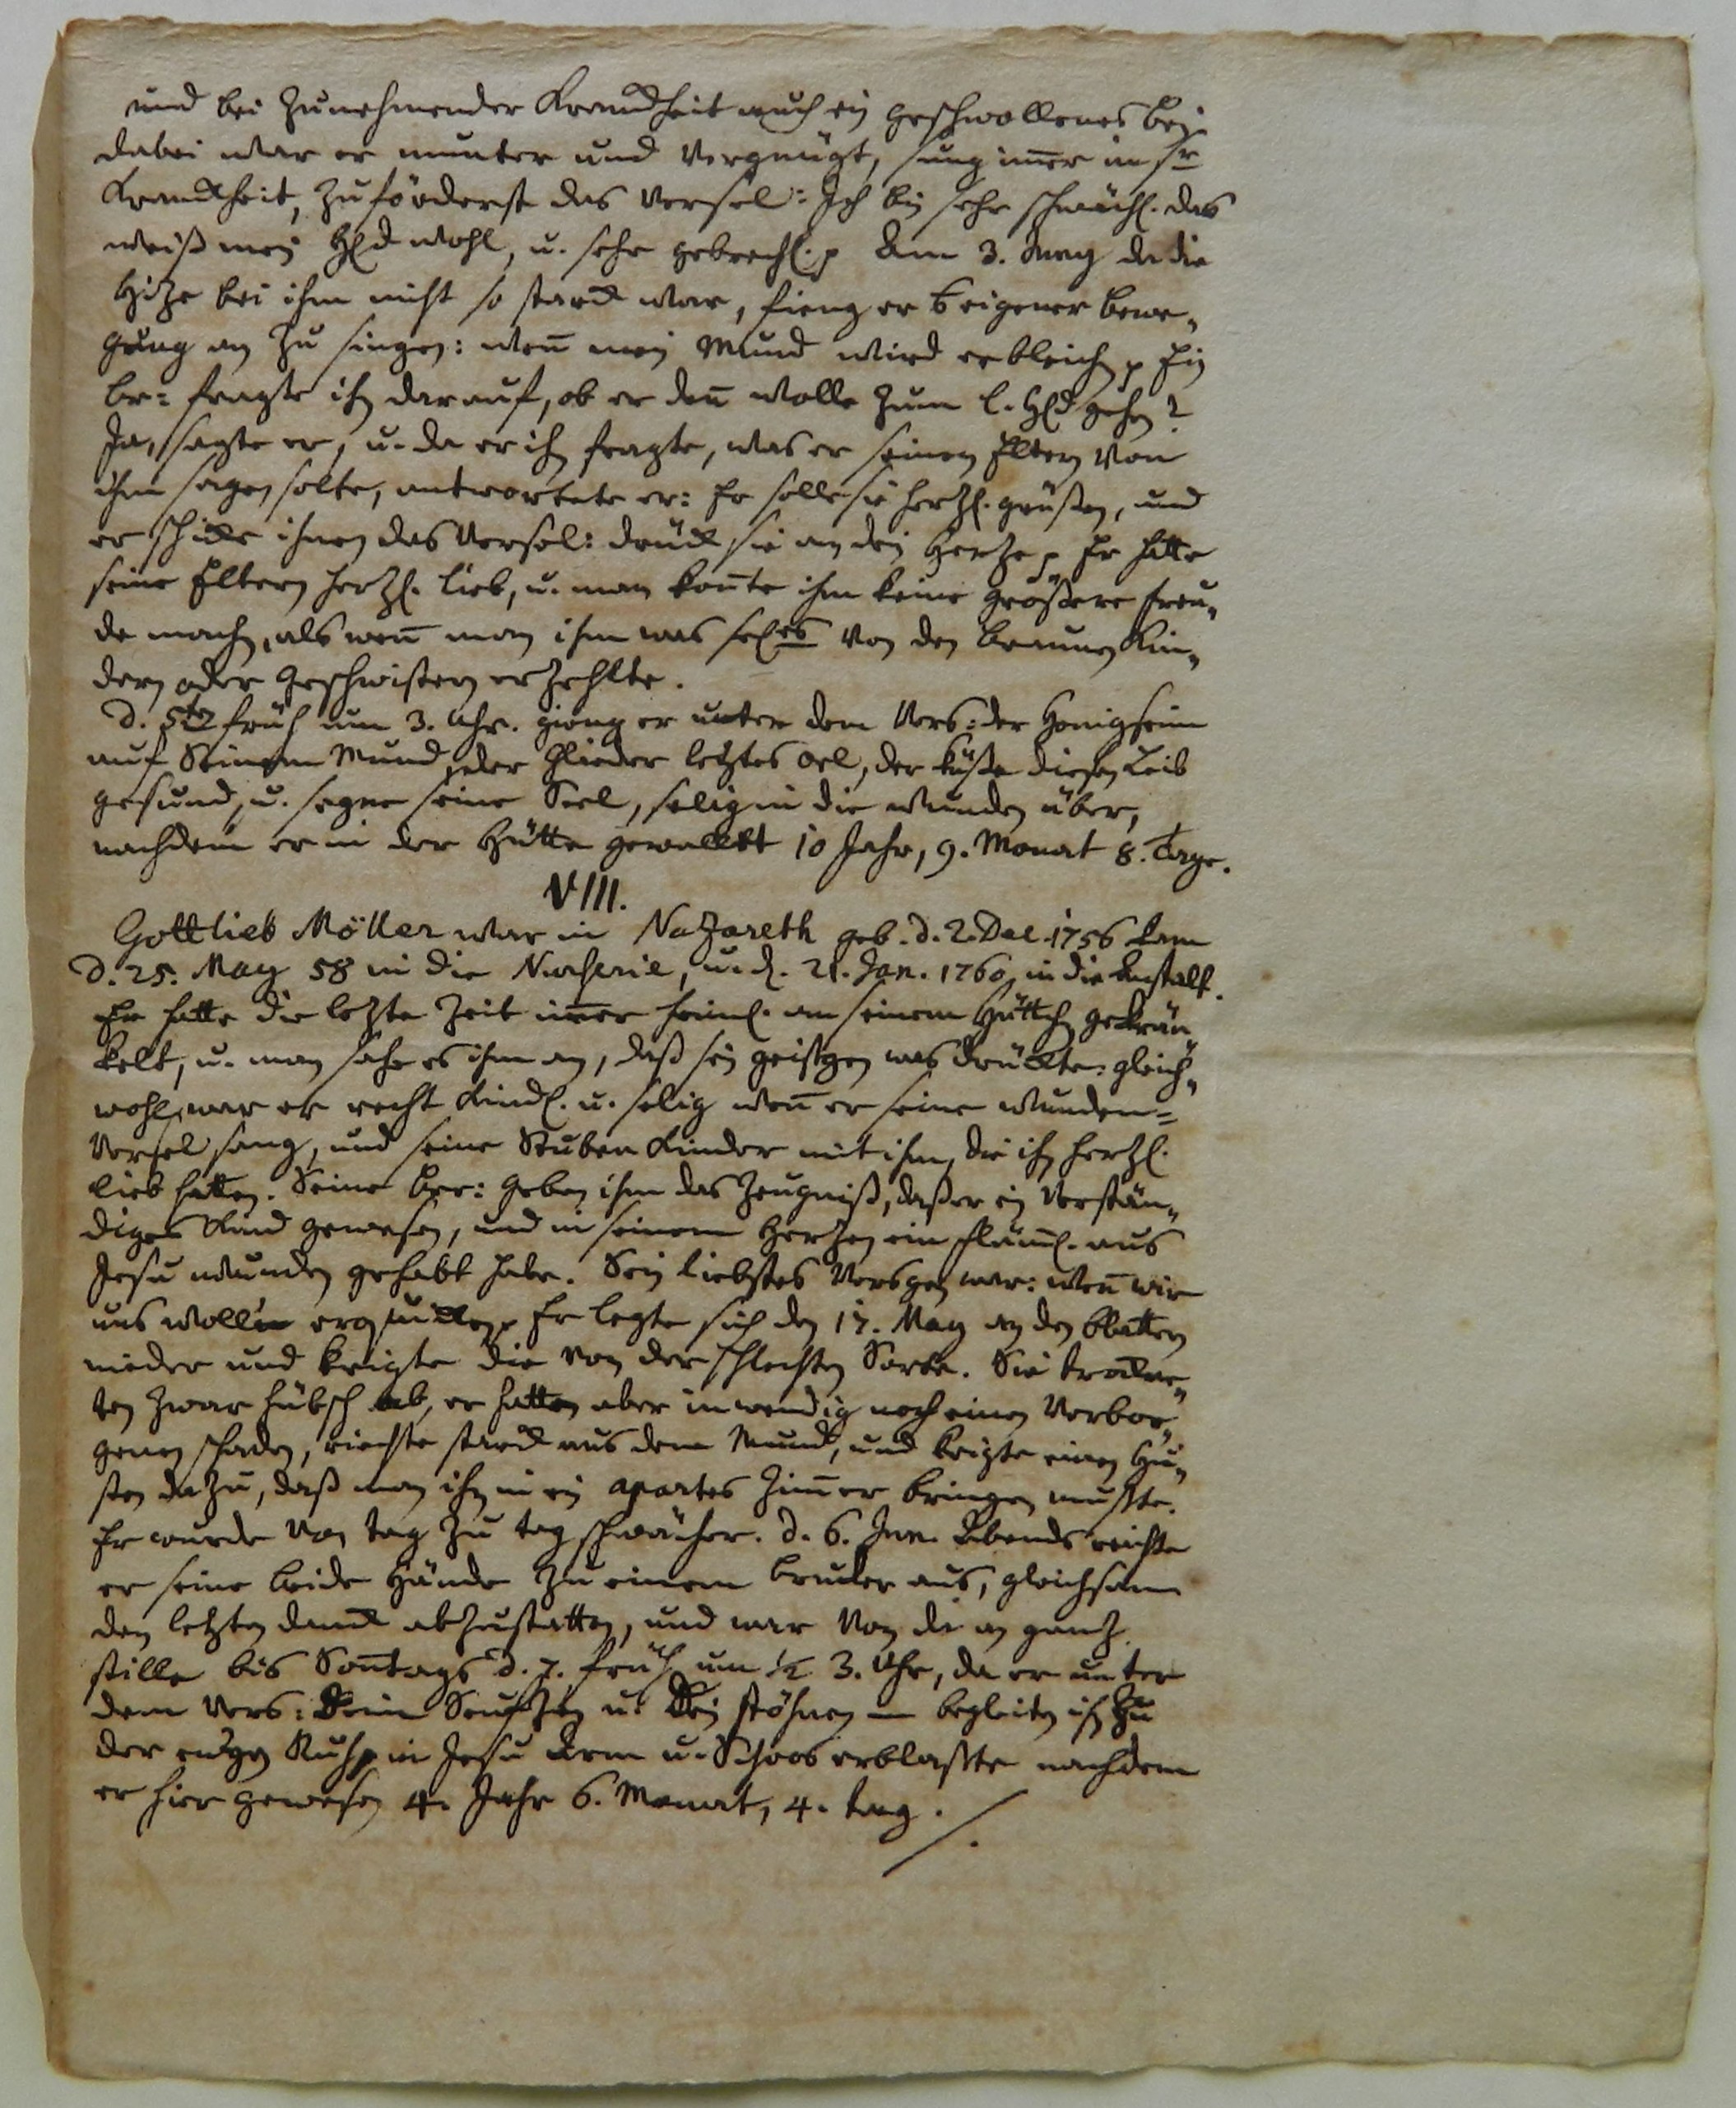 und bei zunehmender Kranckheit auch ein geschwollenes bein
dabei war er munter und vergnügt, sung im̅er in sr
Kranckheit, zuförderst das Versel: Ich bin sehr schwächl. das
weiß mein Hld wohl, u. sehr gebrechl. p Am 3. May da die
Hitze bei ihm nicht so starck war, fieng er eigener bewe„
gung an zu singen: wen̅ mein Mund wird erbleichen p Ein
br: fragte ihn darauf, ob er den̅ wolle zum l. Hld gehen?
Ja, sagte er, u. da er ihn fragte, was er seinen Eltern von
ihm sagen solte, antwortete er: Er solle sie hertzl. grüßen, und
er schicke ihnen das Versel: drück sie an dein Hertze p Er hatte
seine Eltern hertzl. lieb, u. man kon̅te ihm keine größere freu„
de machen, als wen̅ man ihm was sel.es von den braunen Kin„
dern oder Geschwistern erzehlte.
d. 5ten früh um 3. Uhr. gieng er unter dem Vers: der Honigseim
auf Seinem Mund, der Glieder letztes Oel, der küsse diesen Leib
gesund, u. segne seine Seel, selig in die Wunden über,
nachdem er in der Hütte gewallet 10 Jahr, 9. Monat 8. Tage.
VIII.
Gottlieb Möller war in Nazareth geb. d. 2. Dec. 1756 kam
d. 25. May 58 in die Nurserie, u. d. 21. Jan. 1760, in die Anstalt.
Er hatte die letzte Zeit im̅er heiml. an seinem Hüttchen gekrän„
kelt, u. man sahe es ihm an, daß sein geistgen was drückte: gleich„
wohl, war er recht Kindl. u. selig wen̅ er seine Wunden=
Versel sang, und seine Stuben Kinder mit ihm, die ihn hertzl.
lieb hatten. Seine Brr: geben ihm das Zeugniß, daß er ein verstän„
diges Kind gewesen, und in seinem Hertzen ein flämml. aus
Jesu wunden gehabt habe. Sein liebstes Versgen war: wen̅ wir
uns wolln erquicken p Er legte sich den 17. May an den blattern
nieder und krigte die von der schlechten Sorte. Sie trockne„
ten zwar hübsch ab, er hatte aber inwendig noch einen Verbor„
genen schaden, riechte starck aus dem Mund, und krigte einen Hu„
sten dazu, daß man ihn in ein apartes Zim̅er bringen mußte.
Er wurde von tag zu tag schwächer. d. 6. Jun. Abends reichte
er seine beide Hände zu einem bruder aus, gleichsam
den letzten danck abzustatten, und war von da an gantz
stille bis Son̅tags d. 7. früh um ½ 3. Uhr, da er unter
dem Vers: Dein Seufzen u. Dein stöhnen — begleiten ihn zu
der ew'gen Ruh p in Jesu Arm u. Schoos erblaßte nachdem
er hier gewesen 4. Jahr 6. Monat, 4. tag. ./.